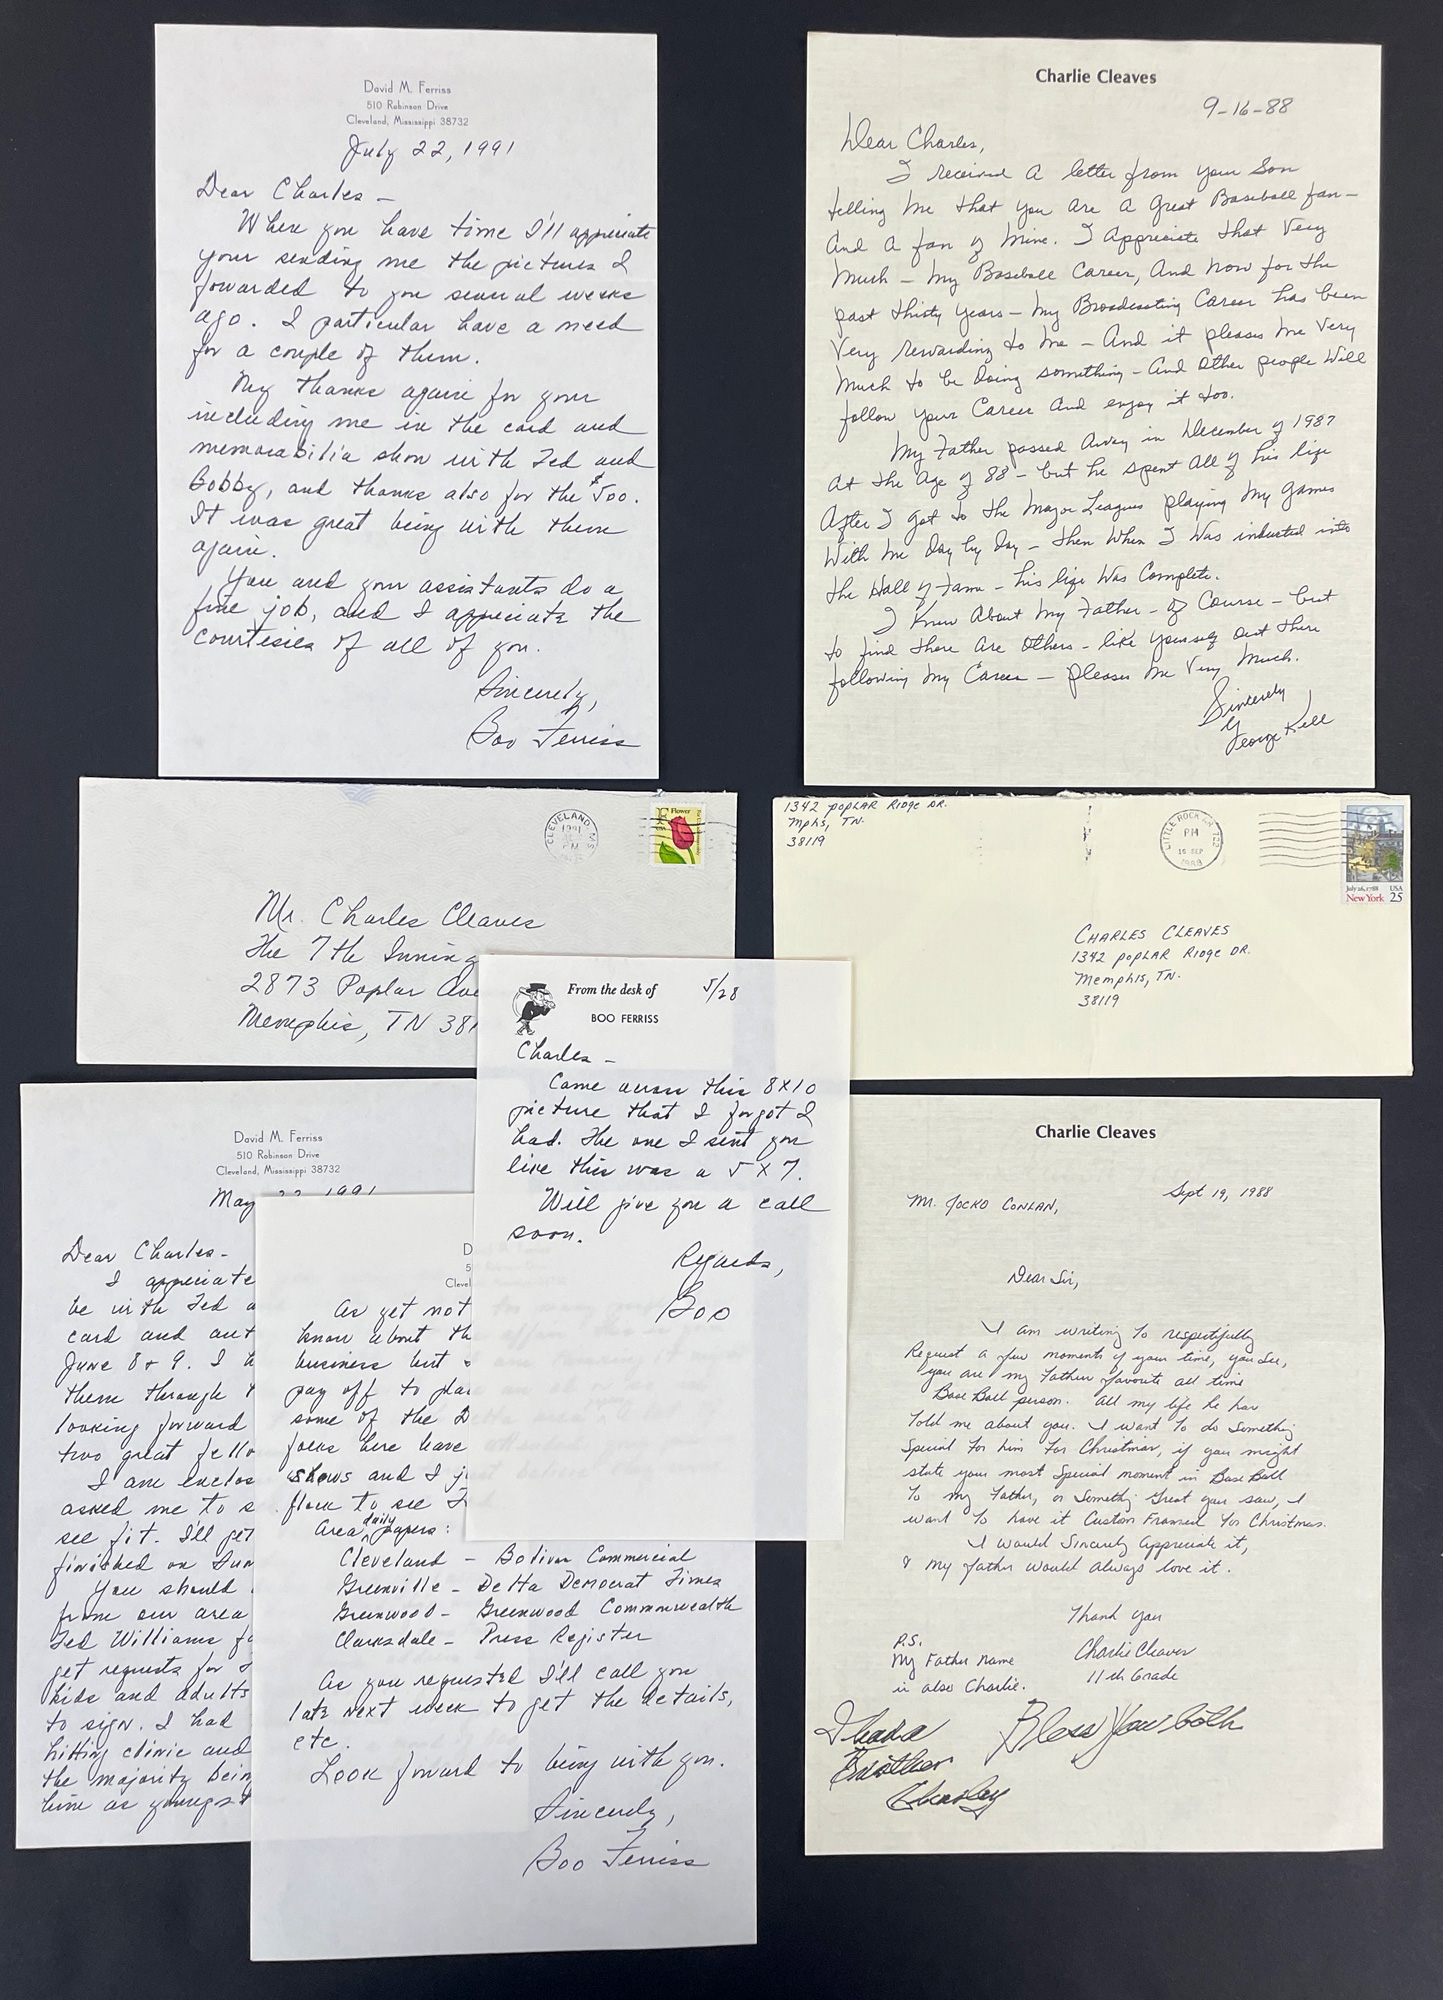 David M. Ferriss
510 Robinson Drive
Cleveland, Mississippi 38732
July 22, 1991
Dear Charles –
When you have time I'll appreciate
your sending me the pictures I
fowarded to you several weeks
ago. I particular have a need
for a couple of them.
My thanks again for your
including me in the card and
memorabilia show with Ted and
Bobby, and thanks also for the $500.
It was great being with them
again.
You and your assistants do a
fine job, and I appreciate the
courtesies of all of you.
Sincerely,
Boo Ferriss
Charlie Cleaves
9-16-88
Dear Charles,
I received A letter from your Son
telling me that you are A great Baseball fan –
And A fan of mine. I Appreciate that Very
Much – My Baseball Career, And now for the
past thirty years – my Broadcasting Career has been
Very rewarding to me – And it pleases me Very
Much to be doing something – And other people will
follow your Career And enjoy it too.
My Father passed Away in December of 1987
At the Age of 88 – but he spent All of his life
After I got to the Major Leagues playing my games
With me day by day – then when I was inducted into
the Hall of Fame – his life was Complete.
I knew About my Father – of Course – but
to find there are others – like yourself out there
following my Career – pleases me Very Much.
Sincerely
George Kell
CLEVELAND, MS
1991
PM
Flower
Mr. Charles Cleaves
The 7th Inning
2873 Poplar Ave
Memphis, TN 381
1342 POPLAR RIDGE DR.
Mphs, TN.
38119
LITTLE ROCK AR 722
PM
16 SEP
1988
July 26, 1788 USA
New York 25
CHARLES CLEAVES
1342 POPLAR RIDGE DR.
Memphis, TN.
38119
From the desk of
5/28
BOO FERRISS
Charles –
Came across this 8X10
picture that I forgot I
had. The one I sent you
like this was a 5X7.
Will give you a call
soon.
Regards,
Boo
David M. Ferriss
510 Robinson Drive
Cleveland, Mississippi 38732
May 22 1991
Dear Charles –
I appreciate
be with Ted a
card and aut
June 8 & 9. I h
them through
looking forward
two great fello
I am enclos
asked me to s
see fit. I'll get
finished on Sun
You should
from our area
Ted Williams fo
get requests for
kids and adults
to sign. I had
hitting clinic and
the majority bein
him as youngst
D
5
Clevel
As yet not
know about th
business but
pay off to pla
some of the D
folks here have
shows and I j
flock to see T
Area daily papers:
Cleveland – Bolivar Commercial
Greenville – Delta Democrat Times
Greenwood – Greenwood Commonwealth
Clarksdale – Press Register
As you requested I'll call you
late next week to get the details,
etc.
Look forward to being with you.
Sincerely,
Boo Ferriss
Charlie Cleaves
Sept 19, 1988
Mr. JOCKO CONLAN,
Dear Sir,
I am writing to respectifully
Request a few moments of your time, you see,
you are my Father favorite all time
Base Ball person. All my life he has
told me about you. I want to do something
Special for him for Christmas, if you might
state your most Special moment in Base Ball
to my Father, or somethig Great you saw, I
want to have it Custom Framed for Christmas.
I would Sincerely Appreciate it,
& my father would always love it.
Thank you
Charlie Cleaves
11th Grade
P.S.
My Father Name
is also Charlie.
I had a
Brother
Charley
Bless you both